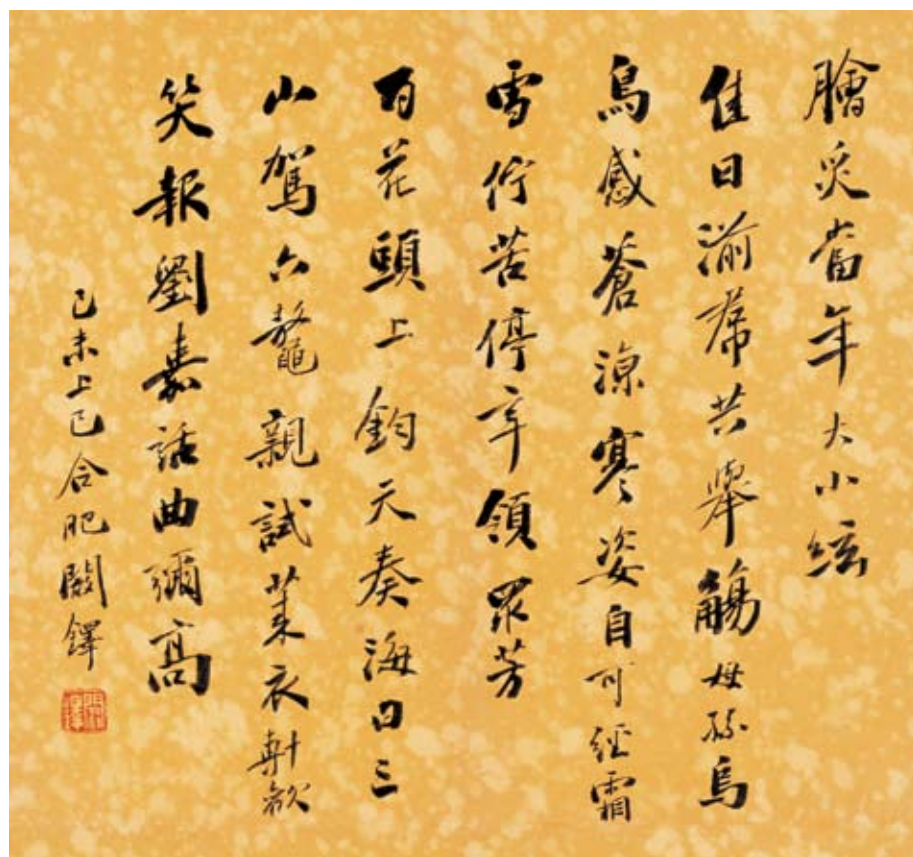 膾炙當年大小絃
佳日湔帬共舉觴母孫烏
鳥感蒼涼寒姿自可經霜
雪佇苦停辛領眾芳
百花頭上鈞天奏海日三
山駕六鼇親試萊衣軒
笑報劉嘉話曲彌高
己未上巳合肥闞鐸
闞鐸